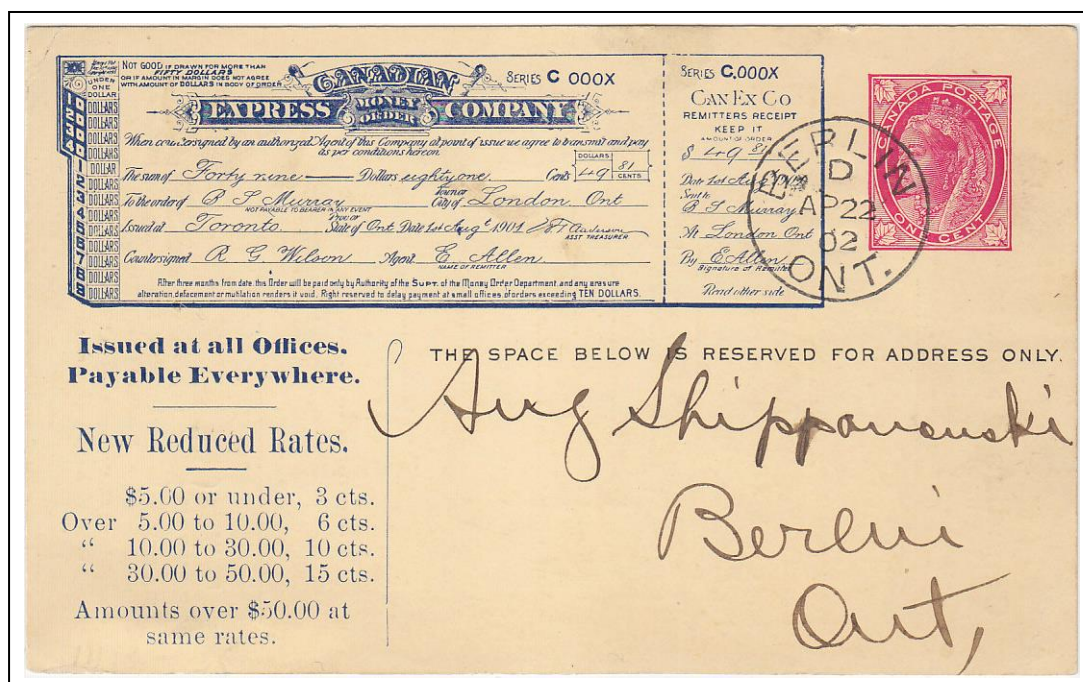 NOT GOOD IF DRAWN FOR MORE THAN
FIFTY DOLLARS
OR IF AMOUNT IN MARGIN DOES NOT AGREE
WITH AMOUNT OF DOLLARS IN BODY OF ORDER
CANADIAN
SERIES C 000X
EXPRESS MONEY ORDER COMPANY
When countersigned by an authorized Agent of this Company at point of issue we agree to transmit and pay
as per conditions hereon
DOLLARS
The sum of Forty nine Dollars eighty one Cents 49 81 CENTS
To the order of B T Murray Town or City of London. Ont
NOT PAYABLE TO BEARER IN ANY EVENT
Issued at Toronto. Prov or State of Ont Date 1st Augt 1901
ASST TREASURER
Countersigned R G Wilson Agent E Allen
NAME OF REMITTER
After three months from date, this Order will be paid only by Authority of the SUPT. of the Money Order Department, and any erasure
alteration, defacement or mutilation renders it void. Right reserved to delay payment at small offices of orders exceeding TEN DOLLARS.
UNDER
ONE
DOLLAR
DOLLARS
SERIES C.000X
CAN EX CO
REMITTERS RECEIPT
KEEP IT
AMOUNT OF ORDER
$ 49 81
Date 1st Aug
Sent to
B T Murray
At London Ont
By E Allen
Signature of Remitter
Read other side
CANADA POSTAGE
ONE CENT
BERLIN
D
AP 22
02
ONT.
Issued at all Offices.
Payable Everywhere.
New Reduced Rates.
$5.00 or under, 3 cts.
Over 5.00 to 10.00, 6 cts.
“ 10.00 to 30.00, 10 cts.
“ 30.00 to 50.00, 15 cts.
Amounts over $50.00 at
same rates.
THE SPACE BELOW IS RESERVED FOR ADDRESS ONLY.
Aug Shippanouski
Berlin
Ont,